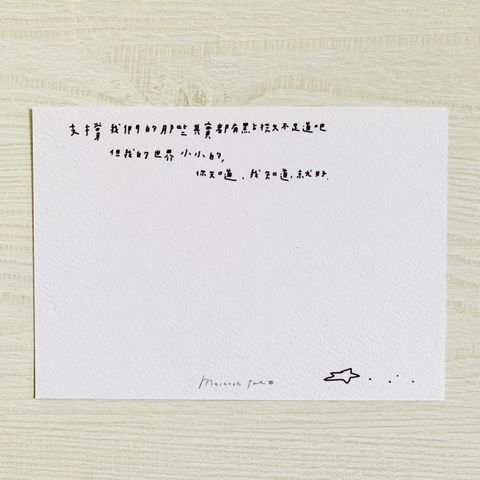 支撐我們的那些其實都有點微不足道吧
但我的世界小小的,
你知道,我知道,就好.